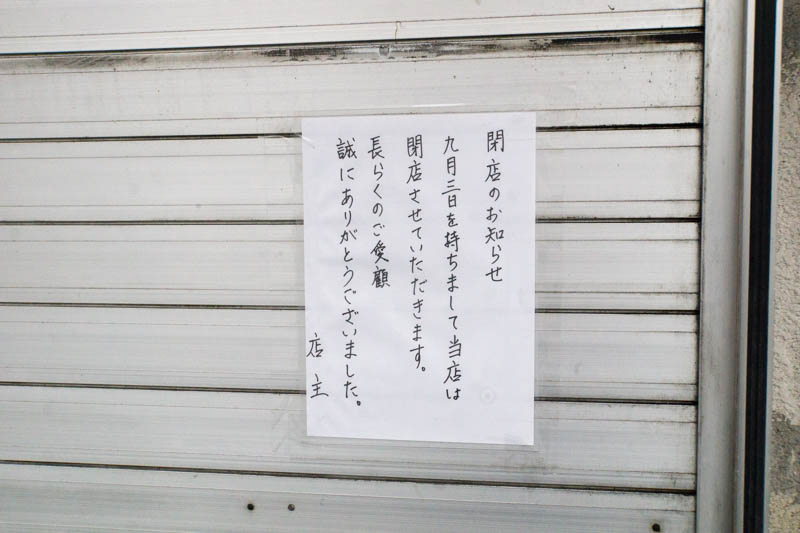 閉店のお知らせ
九月三日を持ちまして当店は
閉店させていただきます。
長らくのご愛顧
誠にありがとうございました。
店主